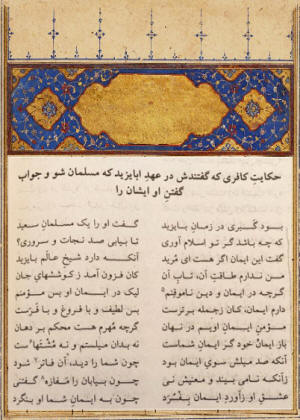 حکایتِ کافری که گفتندش در عهدِ ابایزید که مسلمان شو و جوابِ
گفتنِ او ایشان را
بود گبری در زمانِ بایزید گفت او را یک مسلمانِ سعید
که چه باشد گر تو اسلام آوری تا بیابی صد نجات و سروری؟
گفت این ایمان اگر هست ای مُرید آنکه دارد شیخِ عالَم بایزید
من ندارم طاقتِ آن، تابِ آن کان فزون آمد ز کوششهای جان
گرچه در ایمان و دین ناموقنم لیک در ایمانِ او بس مؤمنم
دارم ایمان، کان زجمله برترست بس لطیف و با فروغ و با فَرست
مؤمنِ ایمانِ اویم در نهان گرچه مُهرم هست محکم بر دهان
باز ایمان خود گر ایمانِ شماست نه بدان میلستم و نه مُشتَهاست
آنکه صد میلش سوی ایمان بود چون شما را دید، آن فاتر شود
زآنکه نامی بیند و معنیش نی چون بیابان را مَفازه گفتنی
عشقِ او زآوردِ ایمان بِفْسُرَد چون به ایمانِ شما او بنگرد